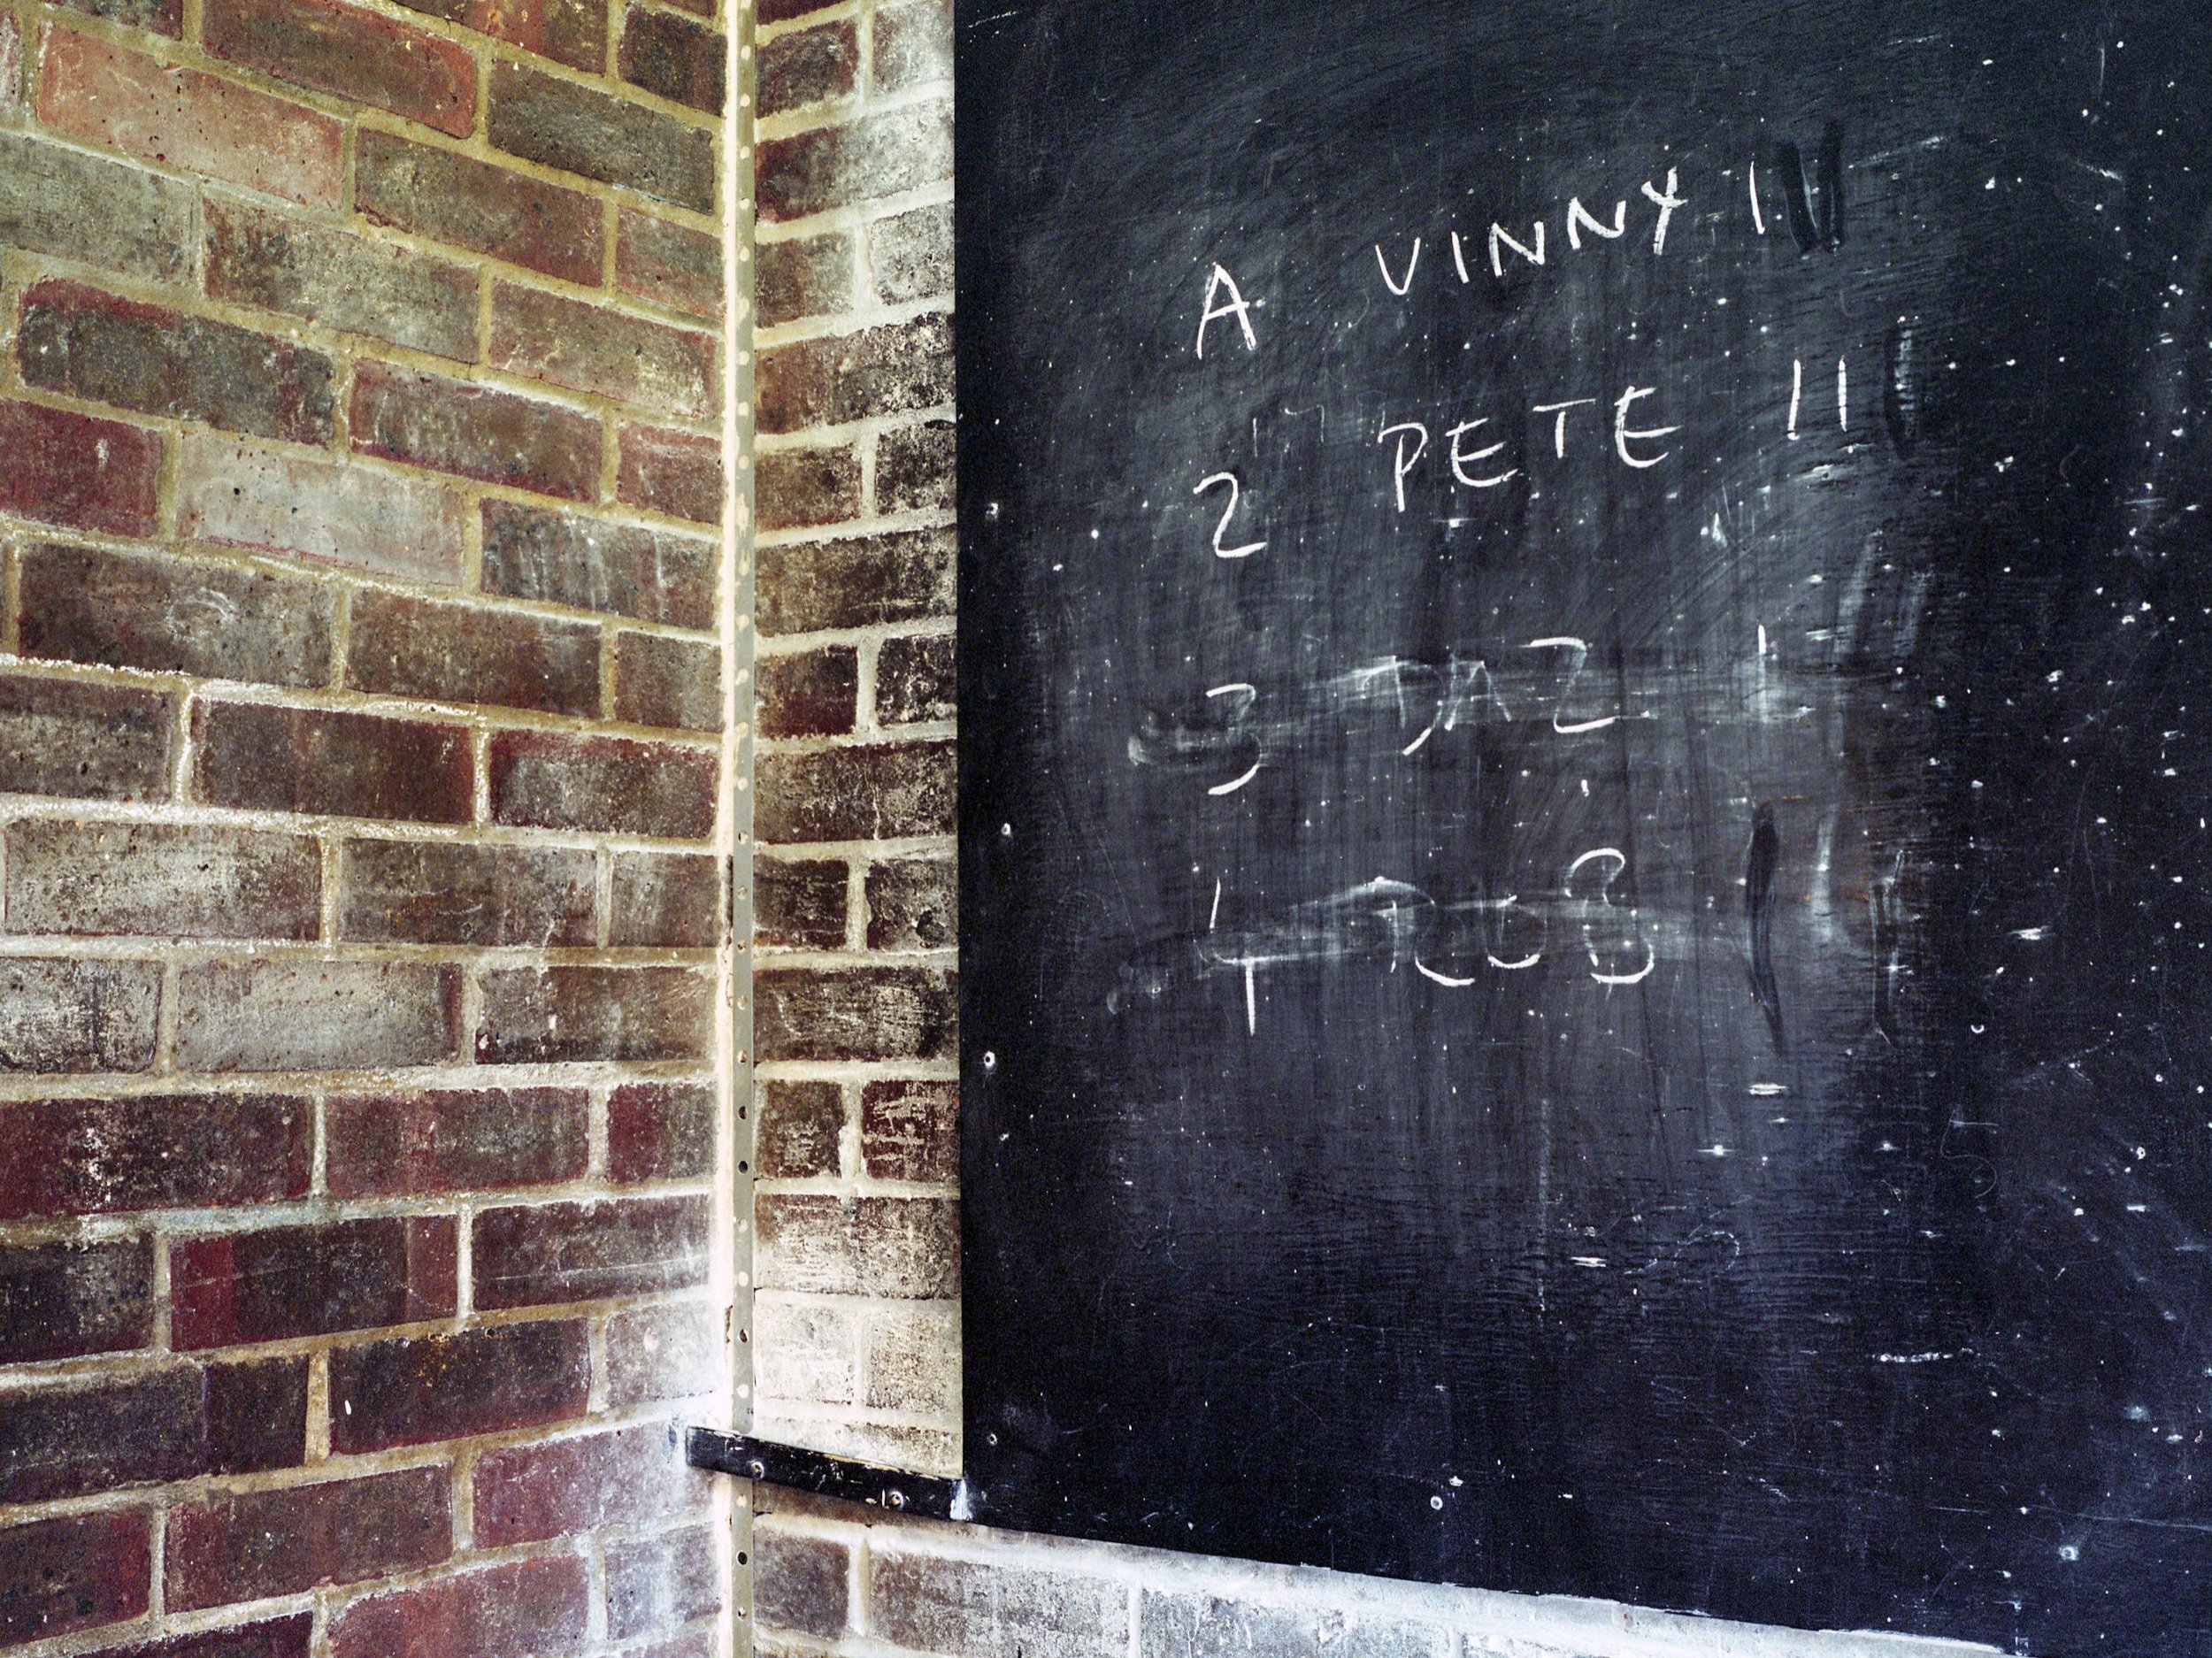 A VINNY I
2 PETE II
3 DAZ I
4 ROB